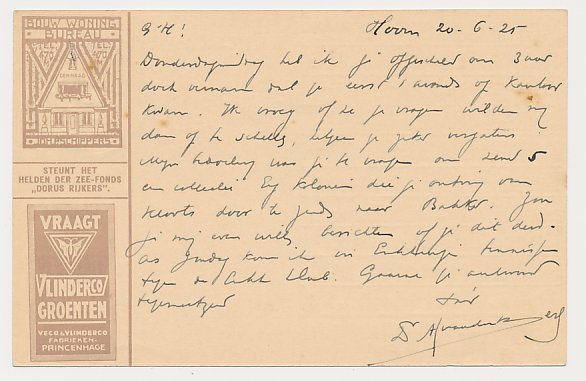 BOUW WONING
BUREAU
TEL. 470
TEL. 470
DEN HAAG
JOH.P.SCHIPPERS
STEUNT HET
HELDEN DER ZEE-FONDS
„DORUS RIJKERS".
VRAAGT
VLINDERCO
GROENTEN
VECO & VLINDERCO
FABRIEKEN
PRINCENHAGE
G.H! Hoorn 20-6-25
Donderdagmiddag heb ik je opgebeld om 3 uur
doch vernam dat je eerst 's avonds op kantoor
kwam. Ik vroeg of ze je vragen wilden mij
dan op te schellen, je zeker vergeten!
Mijn bedoeling was je te vragen om 5
en collecties Eng. Kolonien die je ontving van
door te zenden naar Bakker. Zou
je mij even willen berichten of je dit deed.
As Zondag kom ik in Enkhuizen tennissen
tegen de Club. Gaarne je antwoord
tegemoetziend